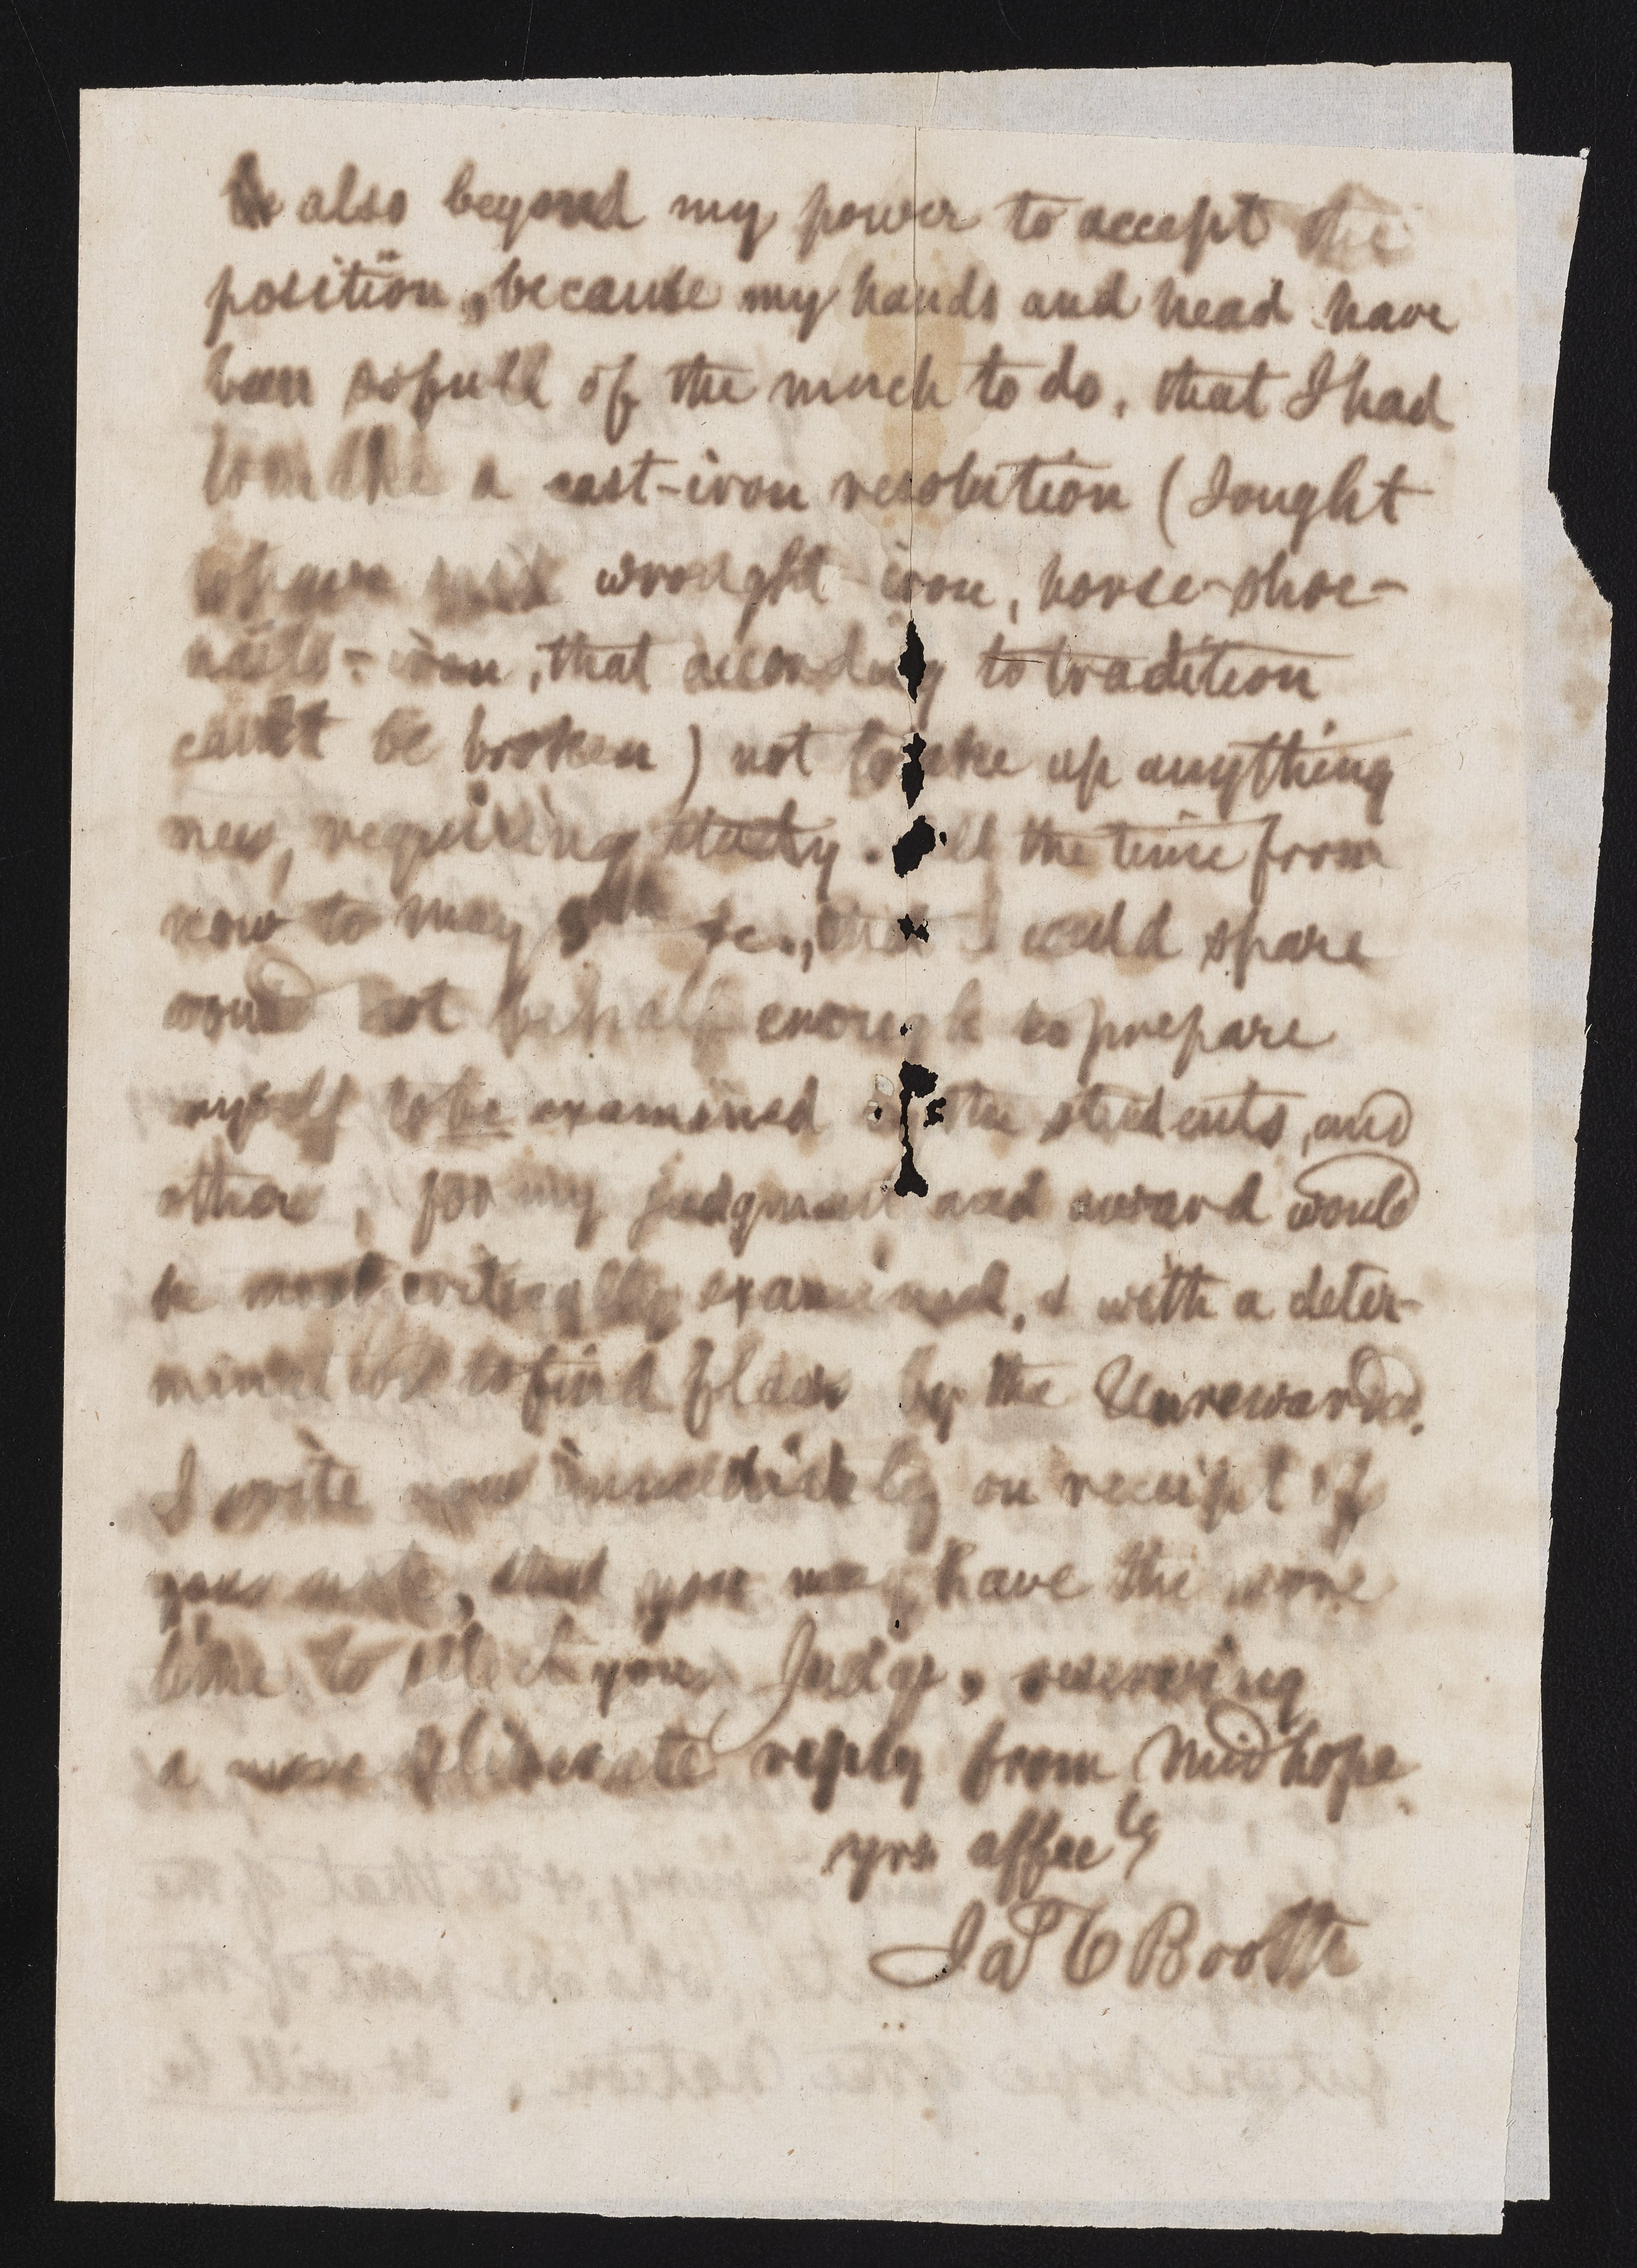 be also beyond my power to accept the
position, because my hands and head have
been so full of the much to do, that I had
to make a cast-iron resolution (I ought
to have said wrought-iron, horse-shoe-
nails-iron, that according to tradition
can't be broken) not to take up anything
new, requiring study. All the time from
now to May 5th &c., that I could spare
would not be half enough to prepare
myself to be examined by the students, and
others, for my judgment and award would
be most critically examined, & with a deter-
mined to find flaws by the Unrewarded.
I write now immediately on receipt of
your note, that you may have the more
time to select your Judge, reserving
a more deliberate reply from Midhope.
yrs affecly
Jas C Booth